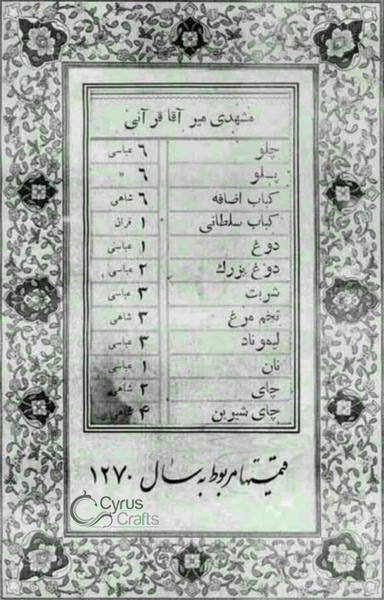 مشهدی میر آقا قرآنی
چلو ۶ عباسی
پلو ۶ "
کباب اضافه ۶ شاهی
کباب سلطانی ۱ قران
دوغ ۱ عباسی
دوغ بزرگ ۲ عباسی
شربت ۳ عباسی
تخم مرغ ۳ شاهی
لیموناد ۳ عباسی
نان ۱ عباسی
چای ۲ شاهی
چای شیرین ۴ شاهی
قیمتها مربوط به سال ۱۲۷۰
Cyrus
Crafts